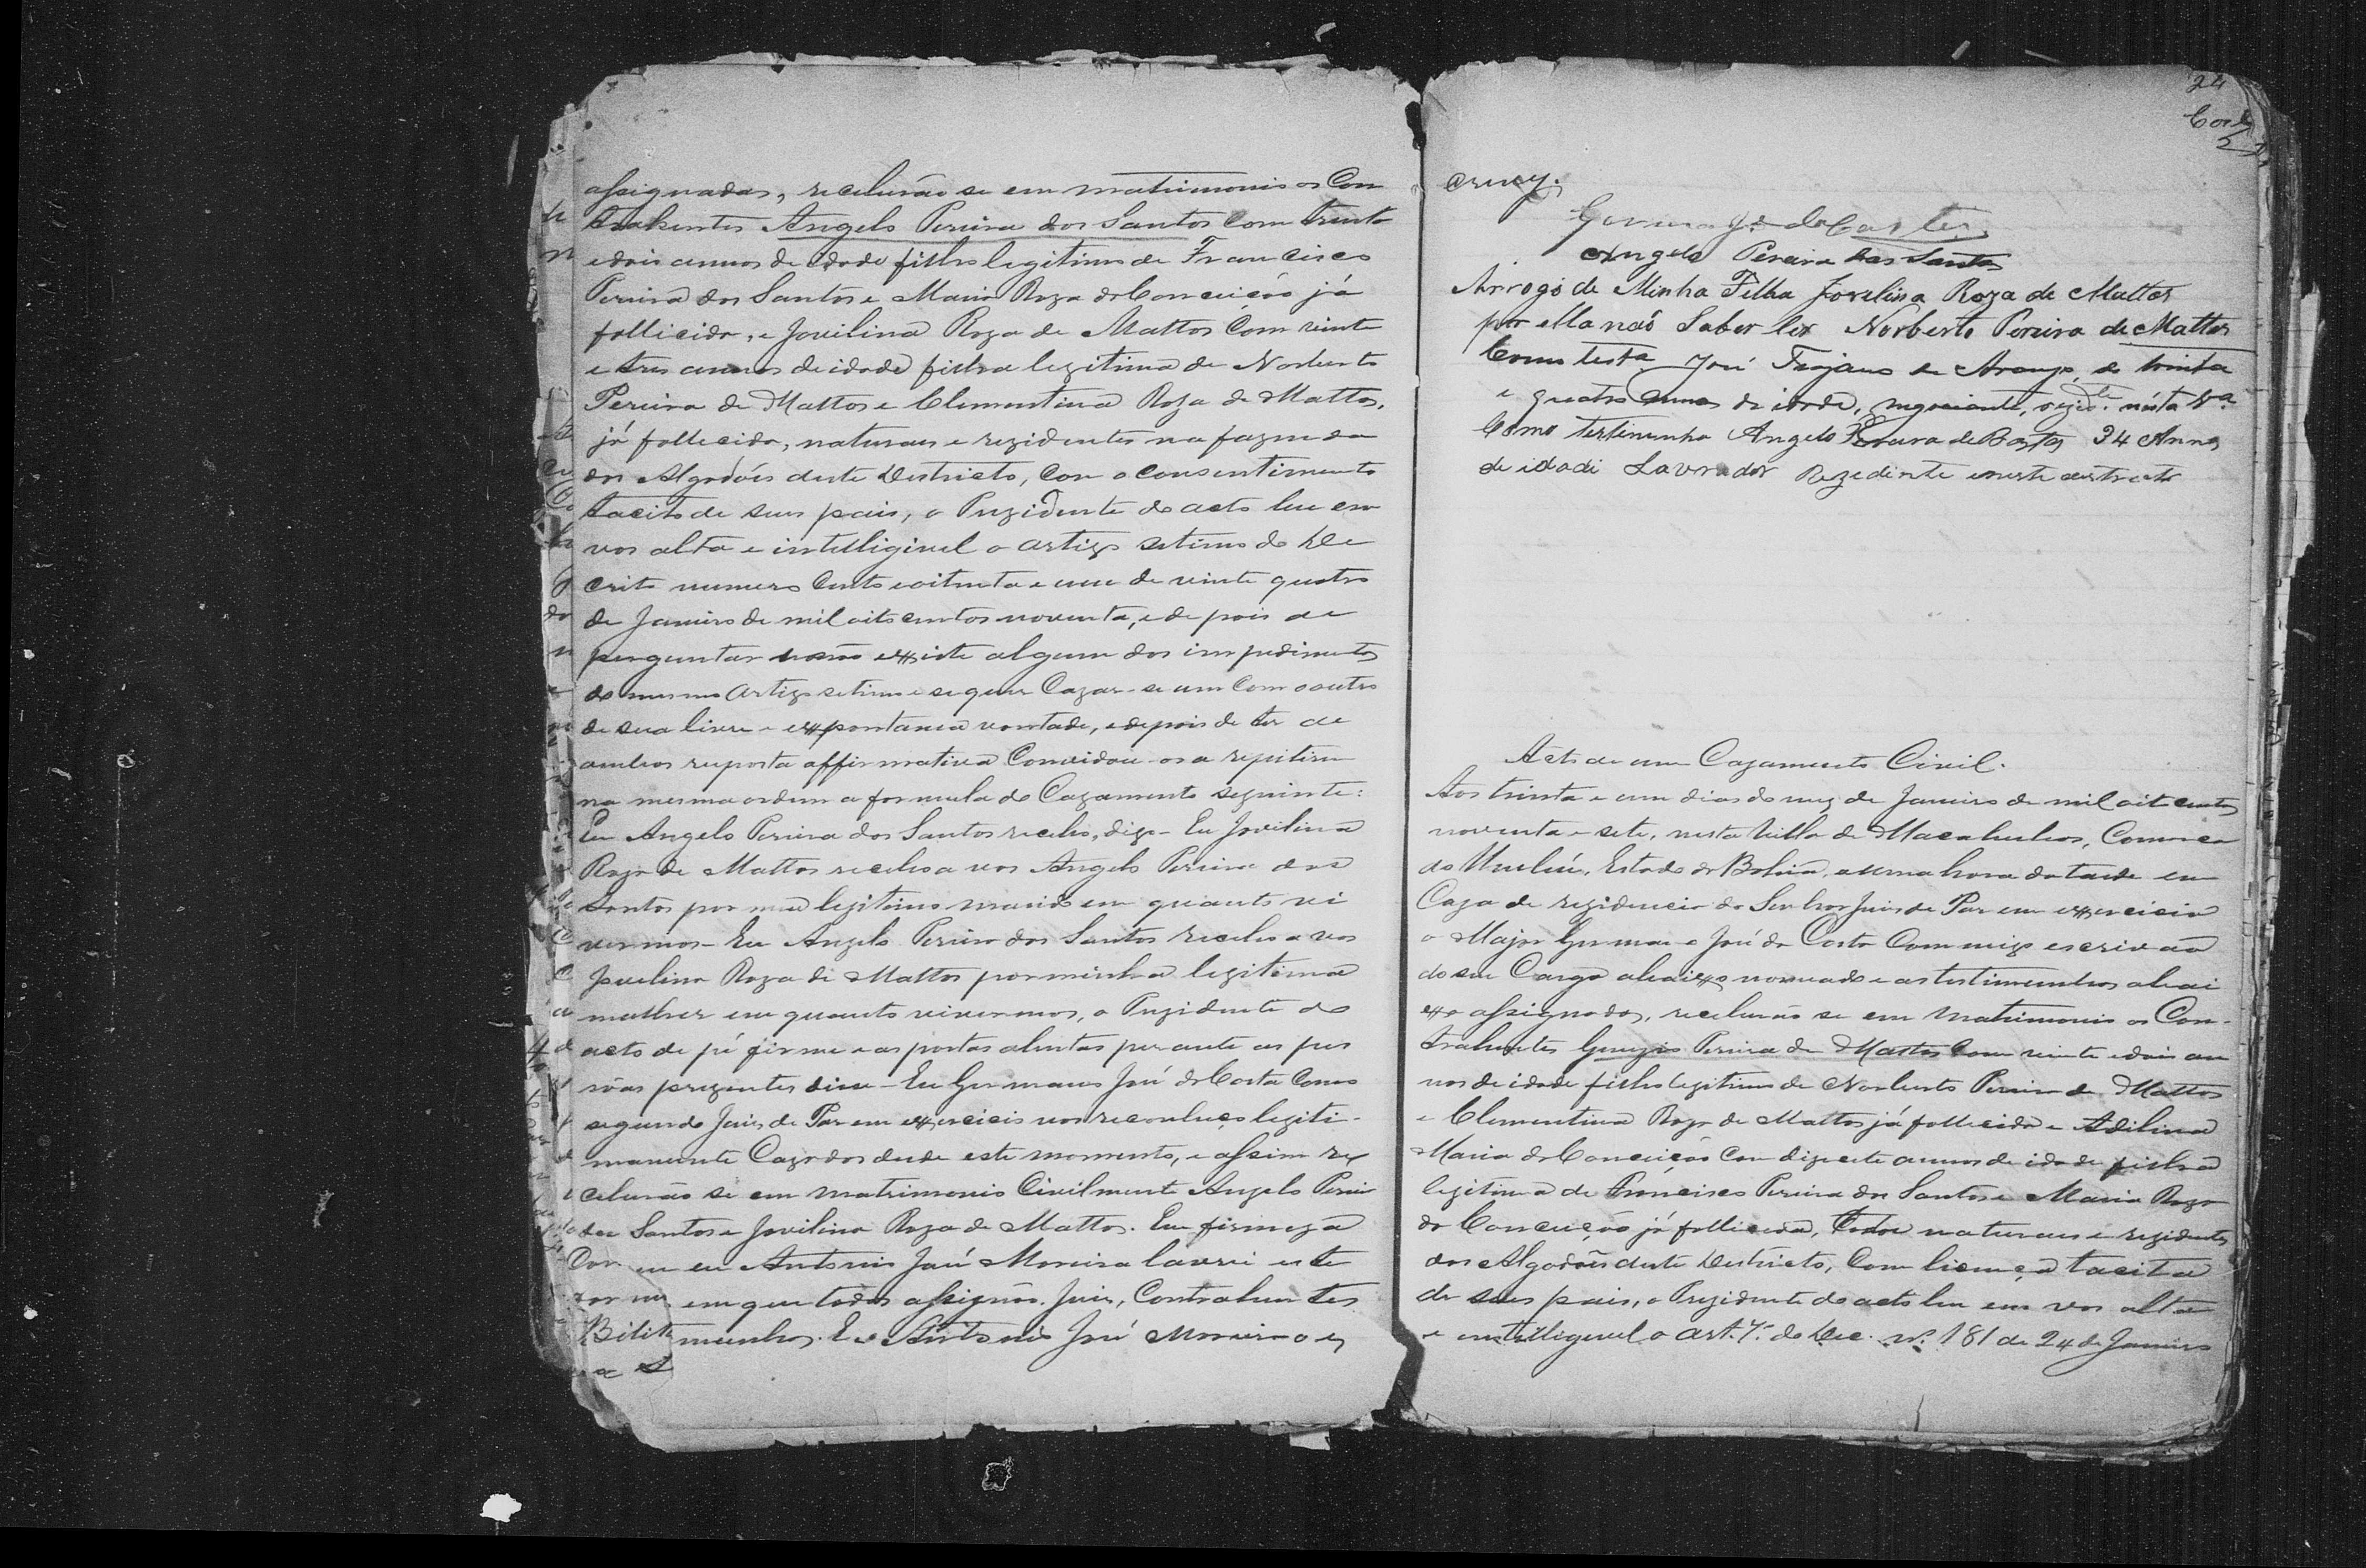 assignadas, receberão se em matrimonio os Con
trahentes Angelo Pereira dos Santos com trinta
e dois annos de idade filho legitimo de Francisco
Pereira dos Santos e Maria Roza da Conceição já
fallicida, e Jovilina Roza de Mattos com vinte
e tres annos de idade filha legitima de Norberto
Pereira de Mattos e Clementina Roza de Mattos,
já fallecida, naturaes e rezidentes na fazenda
dos Algodões deste Destricto, com o consentimento
tacito de seus pais, o Prezidente do acto leu em
vos alta e intelligivel o artigo setimo do De
creto numero cento e oitenta e um de vinte quatro
de Janeiro de mil oito centos noventa, e de pois de
perguntar se não existe algum dos impedimentos
do mesmo artigo setimo e se quer Cazar-se um com o outro
de sua livre e expontanea vontade, e depois de ter de
ambos resposta affirmativa Convidou-os a repitirem
na mesma ordem a formula do Cazamento seguinte:
Eu Angelo Pereira dos Santos recebo, digo- Eu Jovilina
Roza de Mattos recebo a vos Angelo Pereira dos
Santos por meu legitimo marido em quanto vi
vermos- Eu Angelo Pereira dos Santos recebo a vos
Jovelina Roza de Mattos por minha legitima
mulher em quanto vivermos, o Prezidente do
acto de pé firme e as portas abertas perante as pes
sôas prezentes disse- Eu Germano José da Costa como
segundo Juis de Pas em exercicio vos reconheço legiti-
mamente Cazados desde este momento, e assim re
ceberão se em matrimonio Civilmente Angelo Pereira
dos Santos e Jovilina Roza de Mattos. Em firmeza
eu Antonio José Moreira lavrei este
em que todos assignão. Juis, Contrahentes
munhas. Eu Antonio José Moreira o es
24
crevy.
Germano Je da Costa
Angelo Pereira dos Santos
Arrogo de Minha Filha Jovelina Roza de Mattos
por ella naõ Saber ler Norberto Pereira de Mattos
Como testa José Trajano de Araujo, de trinta
e quatro annos de idade, negociante, rezide. nésta Va
Como testimunha Angelo Pereira de Bastos 34 Annos
de idadi Lavrador Rezedinte neste destrito
Acto de um Cazamento Civil.
Aos trinta e um dias do mez de Janeiro de mil oito centos
noventa e sete, nesta Villa de Macahubas, Comarca
do Urubú, Estado da Bahia, a uma hora da tarde em
Caza de rezidencia do Senhor Juis de Pas em exercicio
o Major Germano José da Costa Commigo escrivão
do seu Cargo abaixo nomeado e as testimunhas abai
xo assignadas, receberão se em matrimonio os Con-
trahentes Pereira de Mattos com vinte e dois an
nos de idade filho legitimo de Norberto Pereira de Mattos
e Clementina Roza de Mattos já fallecida e Adilina
Maria da Conceição com dezesete annos de idade filha
legitima de Francisco Pereira dos Santos e Maria Roza
da Conceição já fallecida, todos naturaes e rezidentes
dos Algodões deste Destricto, Com licença tacita
de seus pais, o Prezidente do acto leu em vos alta
e intelligivel o art. 7.º do Dec. nº. 181 de 24 de Janeiro